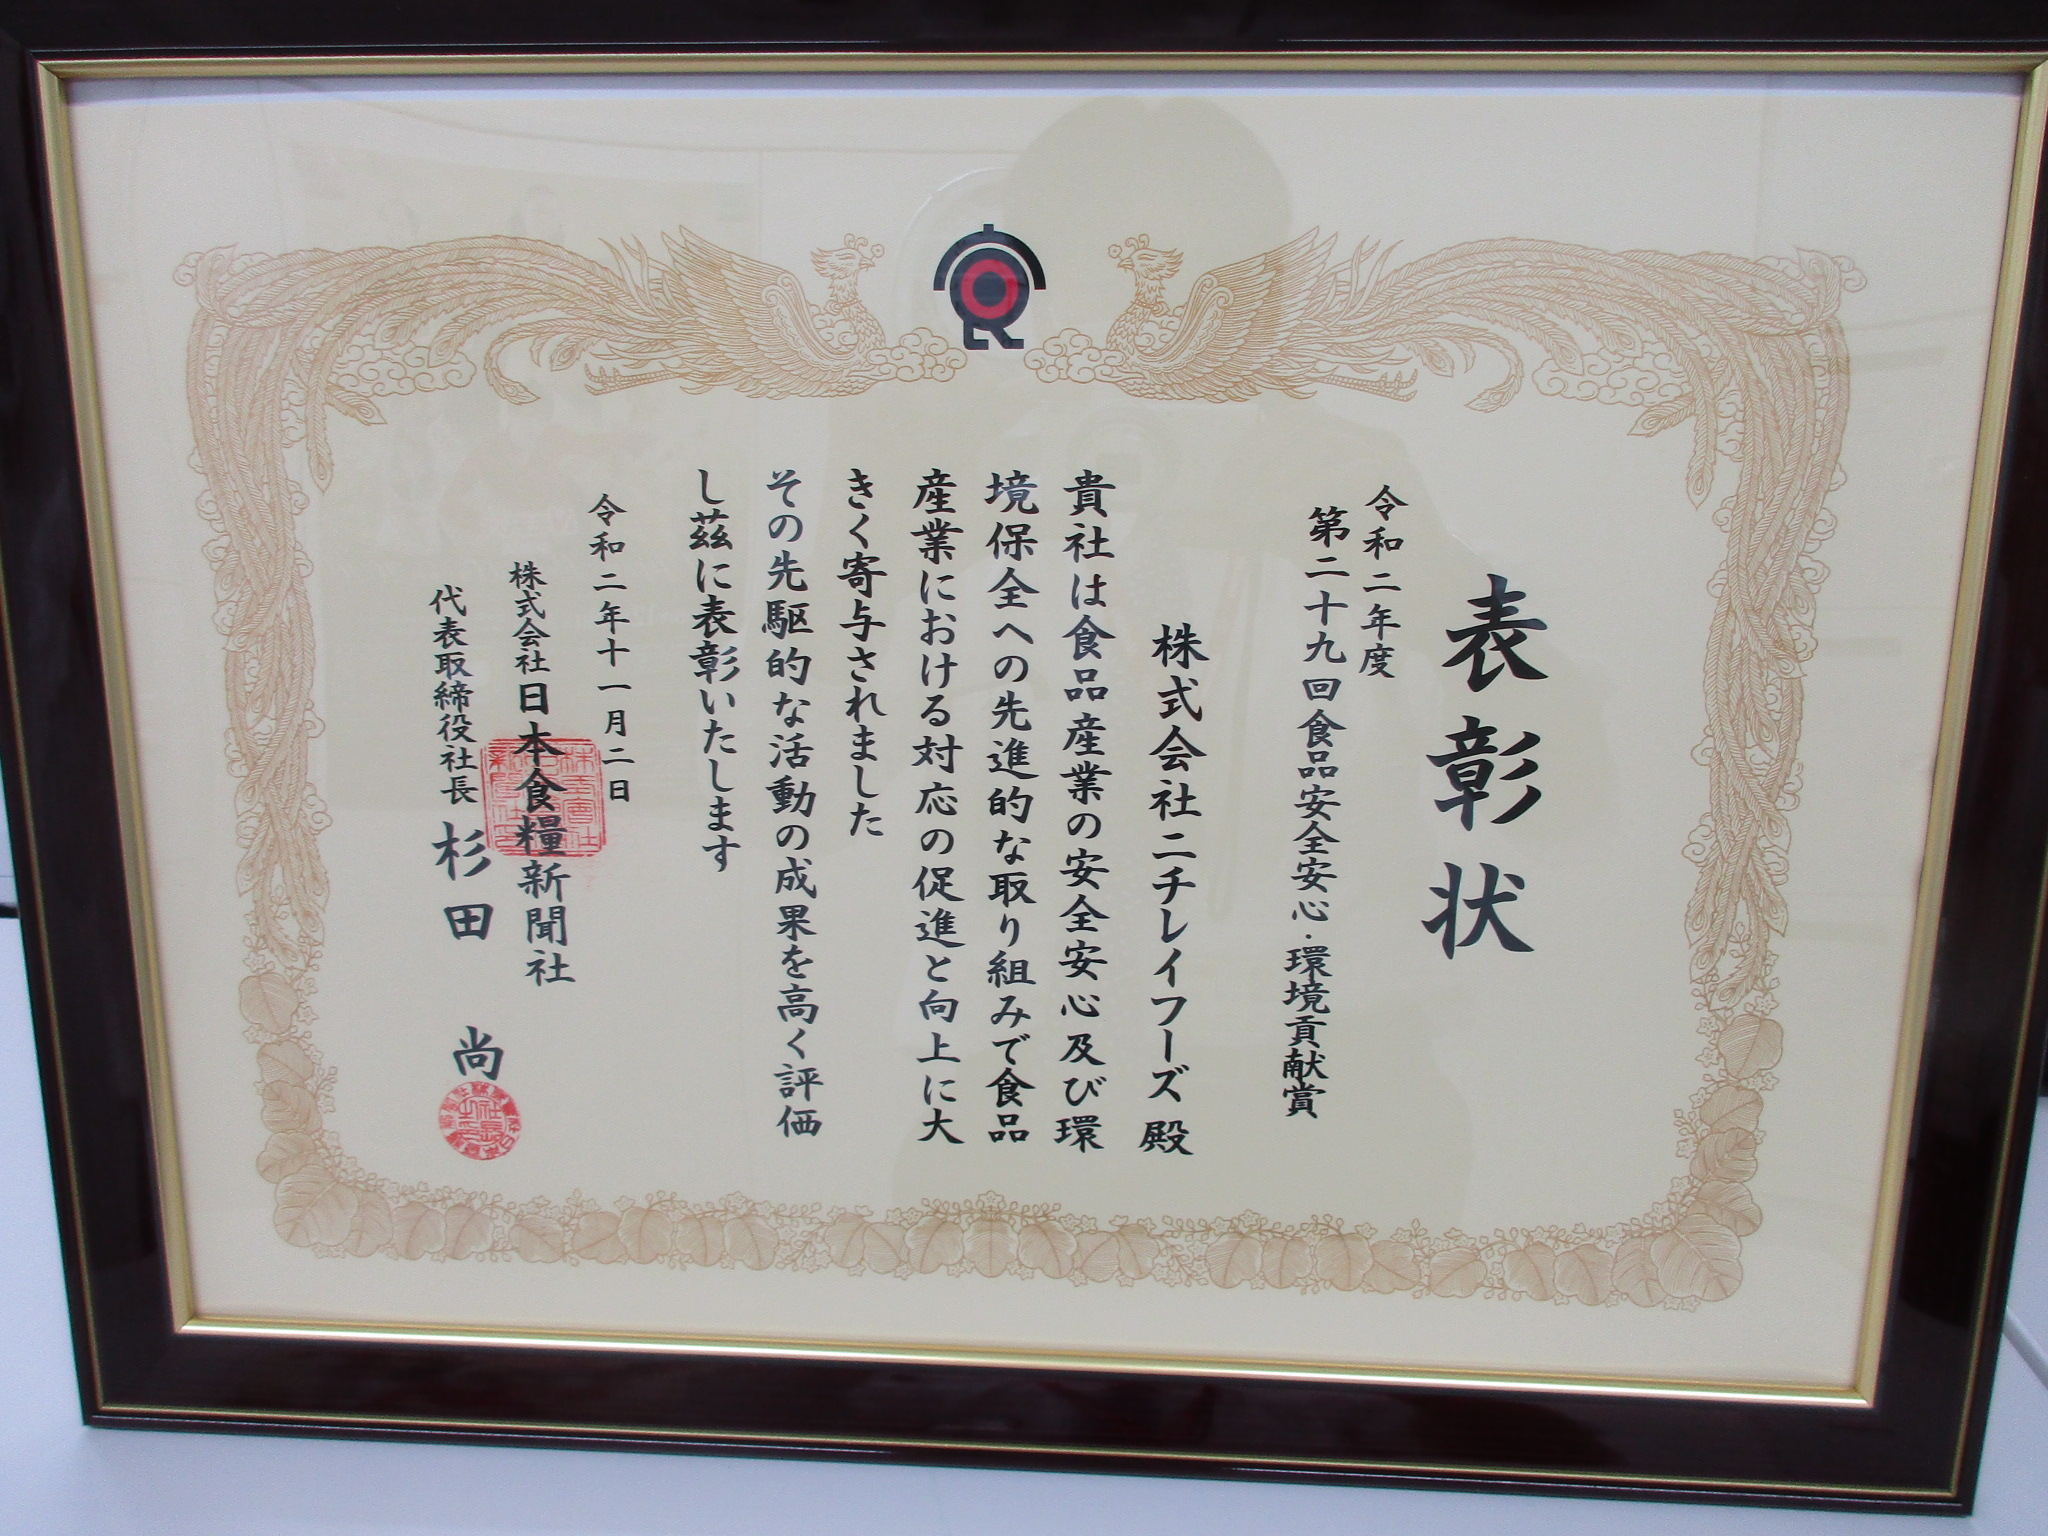 表彰状
令和二年度
第二十九回食品安全安心・環境貢献賞
株式会社ニチレイフーズ 殿
貴社は食品産業の安全安心及び環
境保全への先進的な取り組みで食品
産業における対応の促進と向上に大
きく寄与されました
その先駆的な活動の成果を高く評価
し茲に表彰いたします
令和二年十一月二日
株式会社日本食糧新聞社
代表取締役社長 杉田 尚